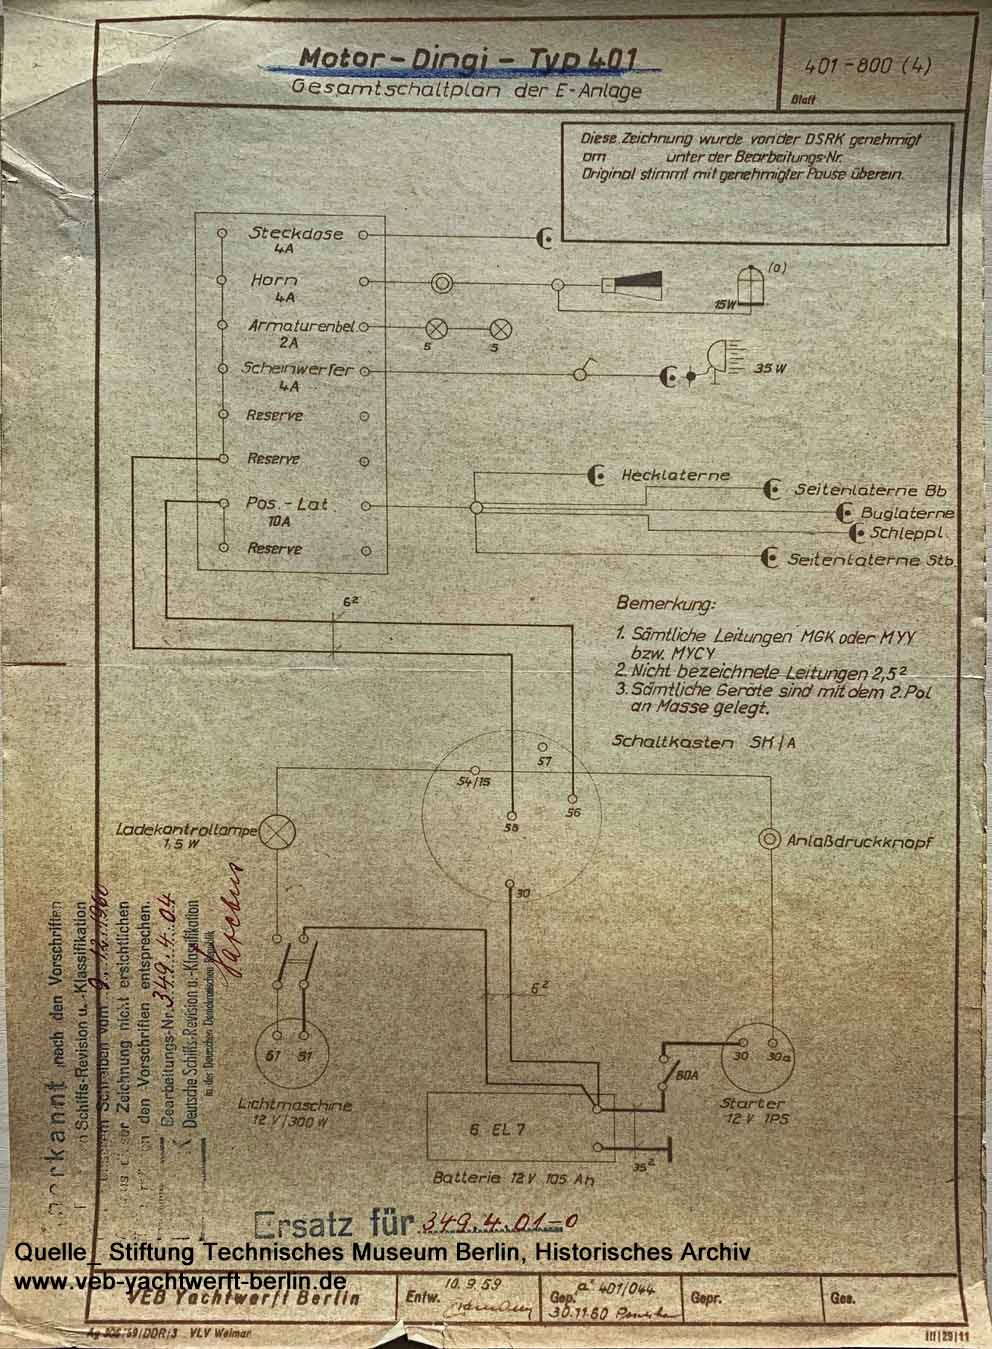 Motor-Dingi-Typ 401
Gesamtschaltplan der E-Anlage
401-800 (4)
Blatt
Diese Zeichnung wurde von der DSRK genehmigt
am unter der Bearbeitungs-Nr.
Original stimmt mit genehmigter Pause überein.
Steckdose
4A
Horn
4A
(a)
15W
Armaturenbel.
2A
5 5
Scheinwerfer
4A
35 W
Reserve
Reserve
Pos.-Lat.
10A
Reserve
Hecklaterne
Seitenlaterne Bb
Buglaterne
Schleppl.
Seitenlaterne Stb.
6²
Bemerkung:
1. Sämtliche Leitungen MGK oder MYY
bzw. MYCY
2. Nicht bezeichnete Leitungen 2,5²
3. Sämtliche Geräte sind mit dem 2. Pol
an Masse gelegt.
Schaltkasten SK/A
57
54/15
58
56
30
Ladekontrollampe
1,5 W
Anlaßdruckknopf
6²
61 51
Lichtmaschine
12 V/300 W
80A
30 30a
Starter
12 V 1PS
6 EL 7
35²
Batterie 12 V 105 Ah
nach den Vorschriften
Schiffs-Revision u.-Klassifikation
Schreiben vom 9.12.1960
Zeichnung nicht ersichtlichen
den Vorschriften entsprechen.
Bearbeitungs-Nr. 349.4.04
Deutsche Schiffs-Revision u.-Klassifikation
in der Deutschen Demokratischen Republik
Ersatz für 349.4.01-0
Quelle_ Stiftung Technisches Museum Berlin, Historisches Archiv
www.veb-yachtwerft-berlin.de
VEB Yachtwerft Berlin
Entw.
10.9.59
Gep.
401/044
30.11.60
Gepr.
Ges.
Ag 306/59/DDR/3 VLV Weimar
III/29/11